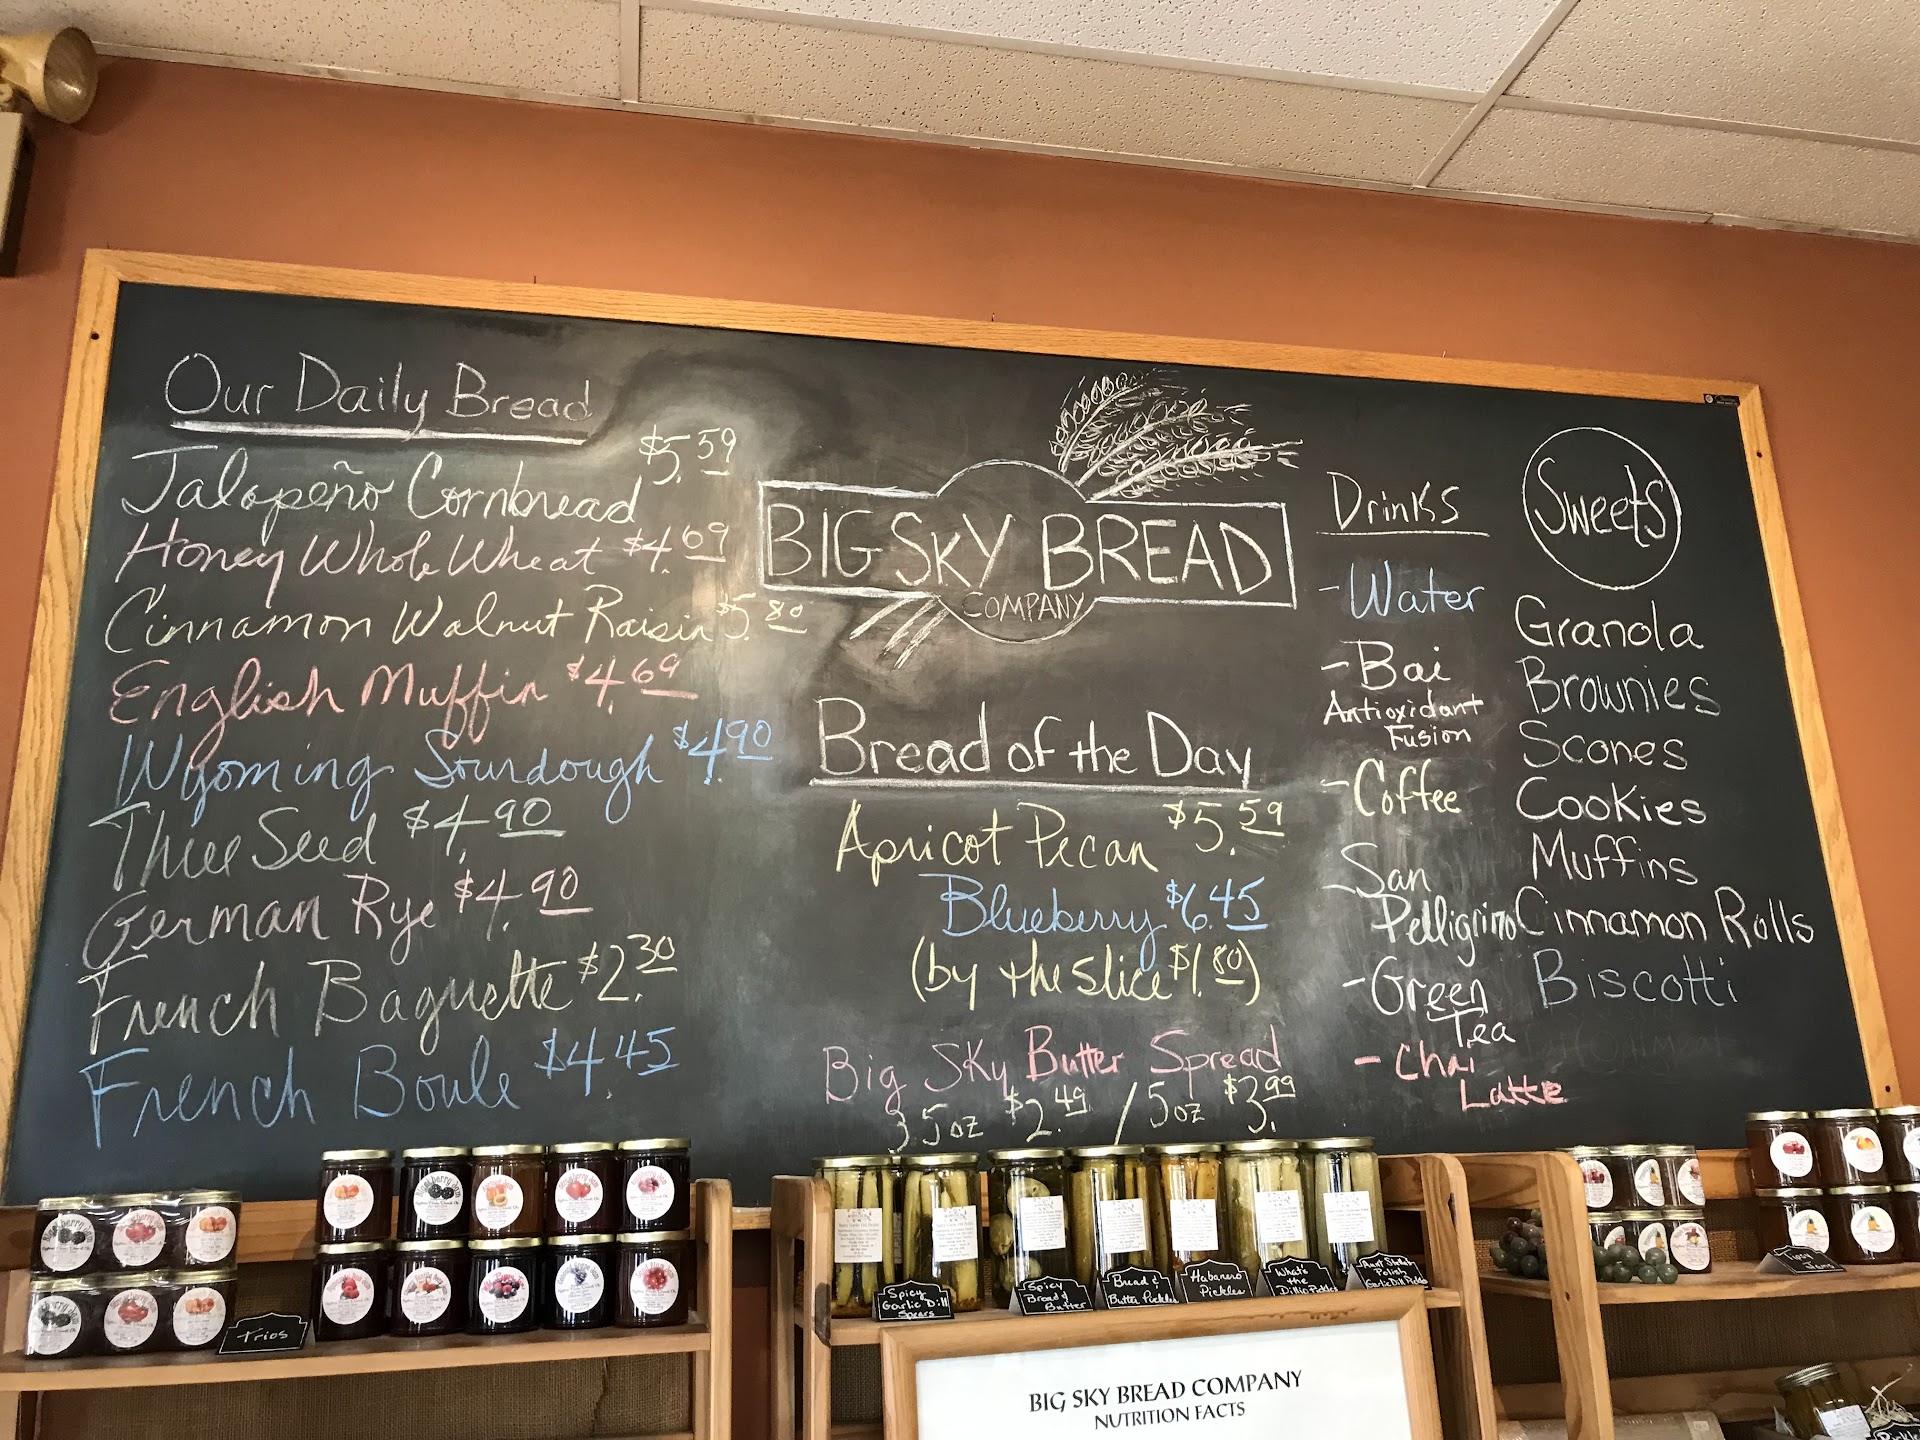 Our Daily Bread
Jalapeño Cornbread $5.59
Honey Whole Wheat $4.09
Cinnamon Walnut Raisin $5.80
English Muffin $4.69
Wyoming Sourdough $4.90
Three Seed $4.90
German Rye $4.90
French Baguette $2.30
French Boule $4.45
BIG SKY BREAD
COMPANY
Bread of the Day
Apricot Pecan $5.59
Blueberry $6.45
(by the slice $1.80)
Big Sky Butter Spread
3.5oz $2.49 / 5oz $3.99
Drinks
-Water
-Bai
Antioxidant
Fusion
-Coffee
-San
Pelligrino
-Green
Tea
-Chai
Latte
Sweets
Granola
Brownies
Scones
Cookies
Muffins
Cinnamon Rolls
Biscotti
Trios
Spicy
Garlic Dill
Spears
Spicy
Bread &
Butter
Bread &
Butter Pickles
Habanero
Pickles
What's
the
Dillio Pickles
Polish
Garlic Dill Pickles
Tipsy
Jams
BIG SKY BREAD COMPANY
NUTRITION FACTS